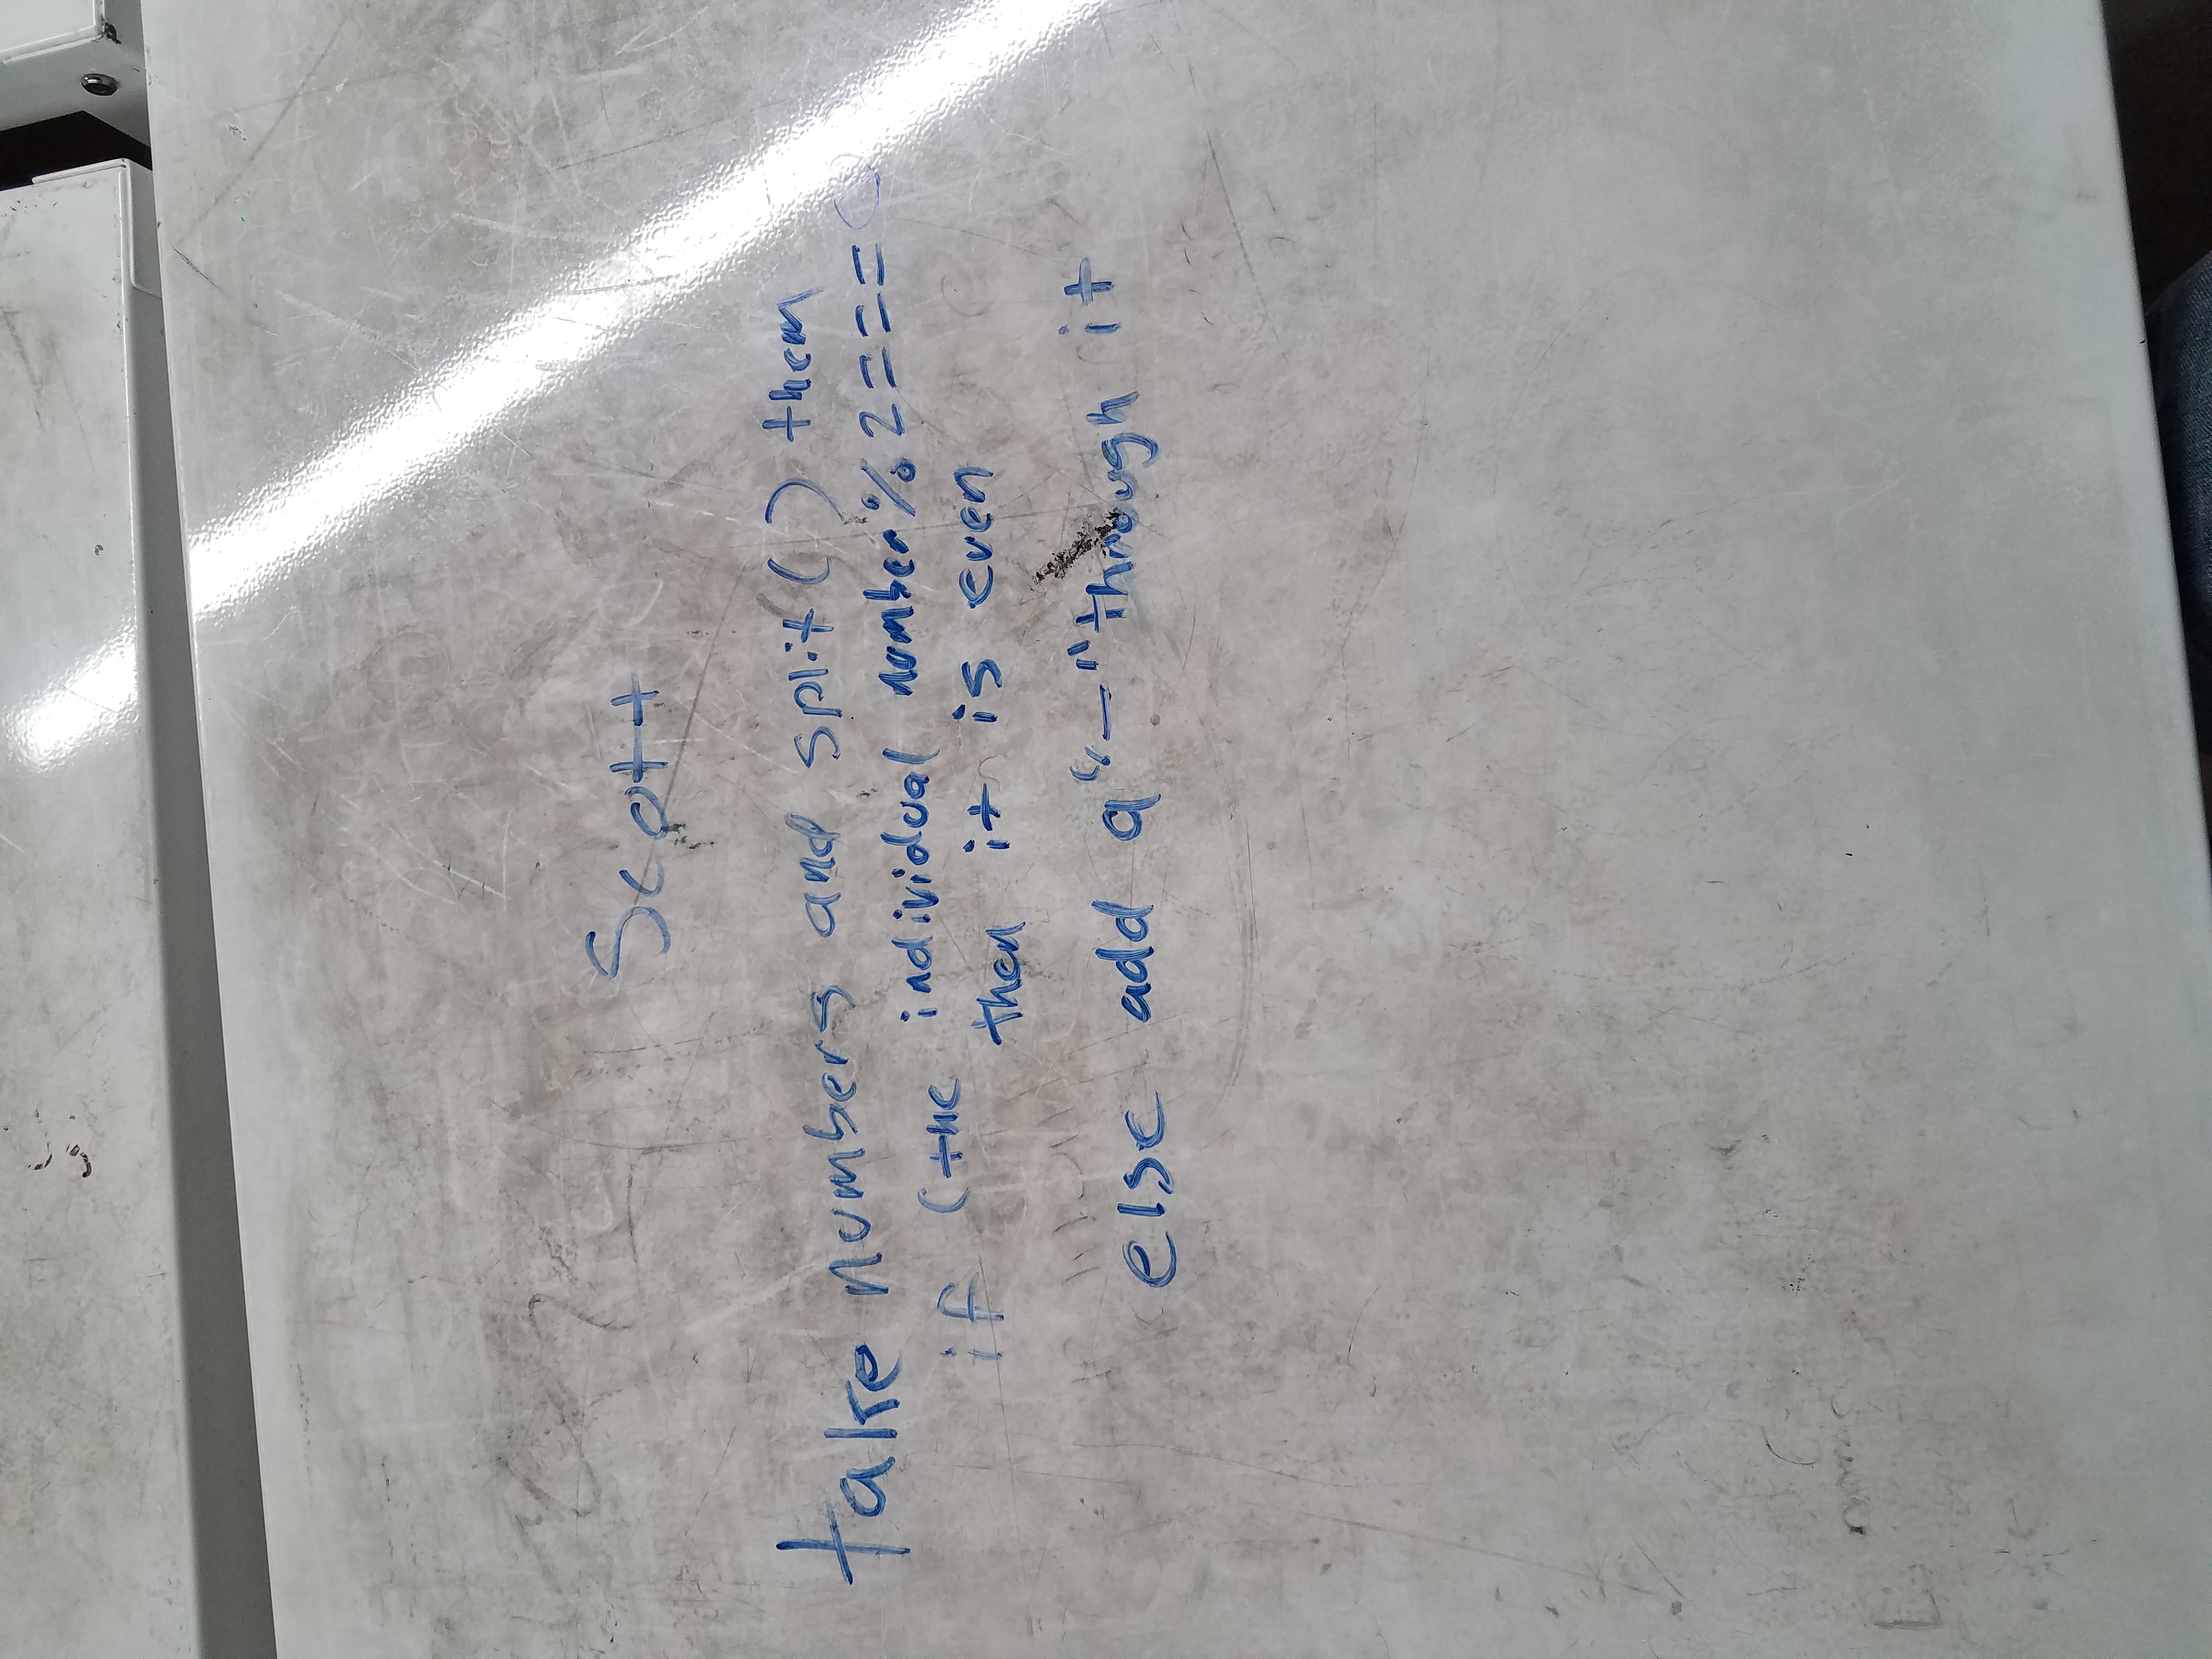 Scott
take numbers and split() them
if (the individual number % 2 === 0
then it is even
else add a "-" through it